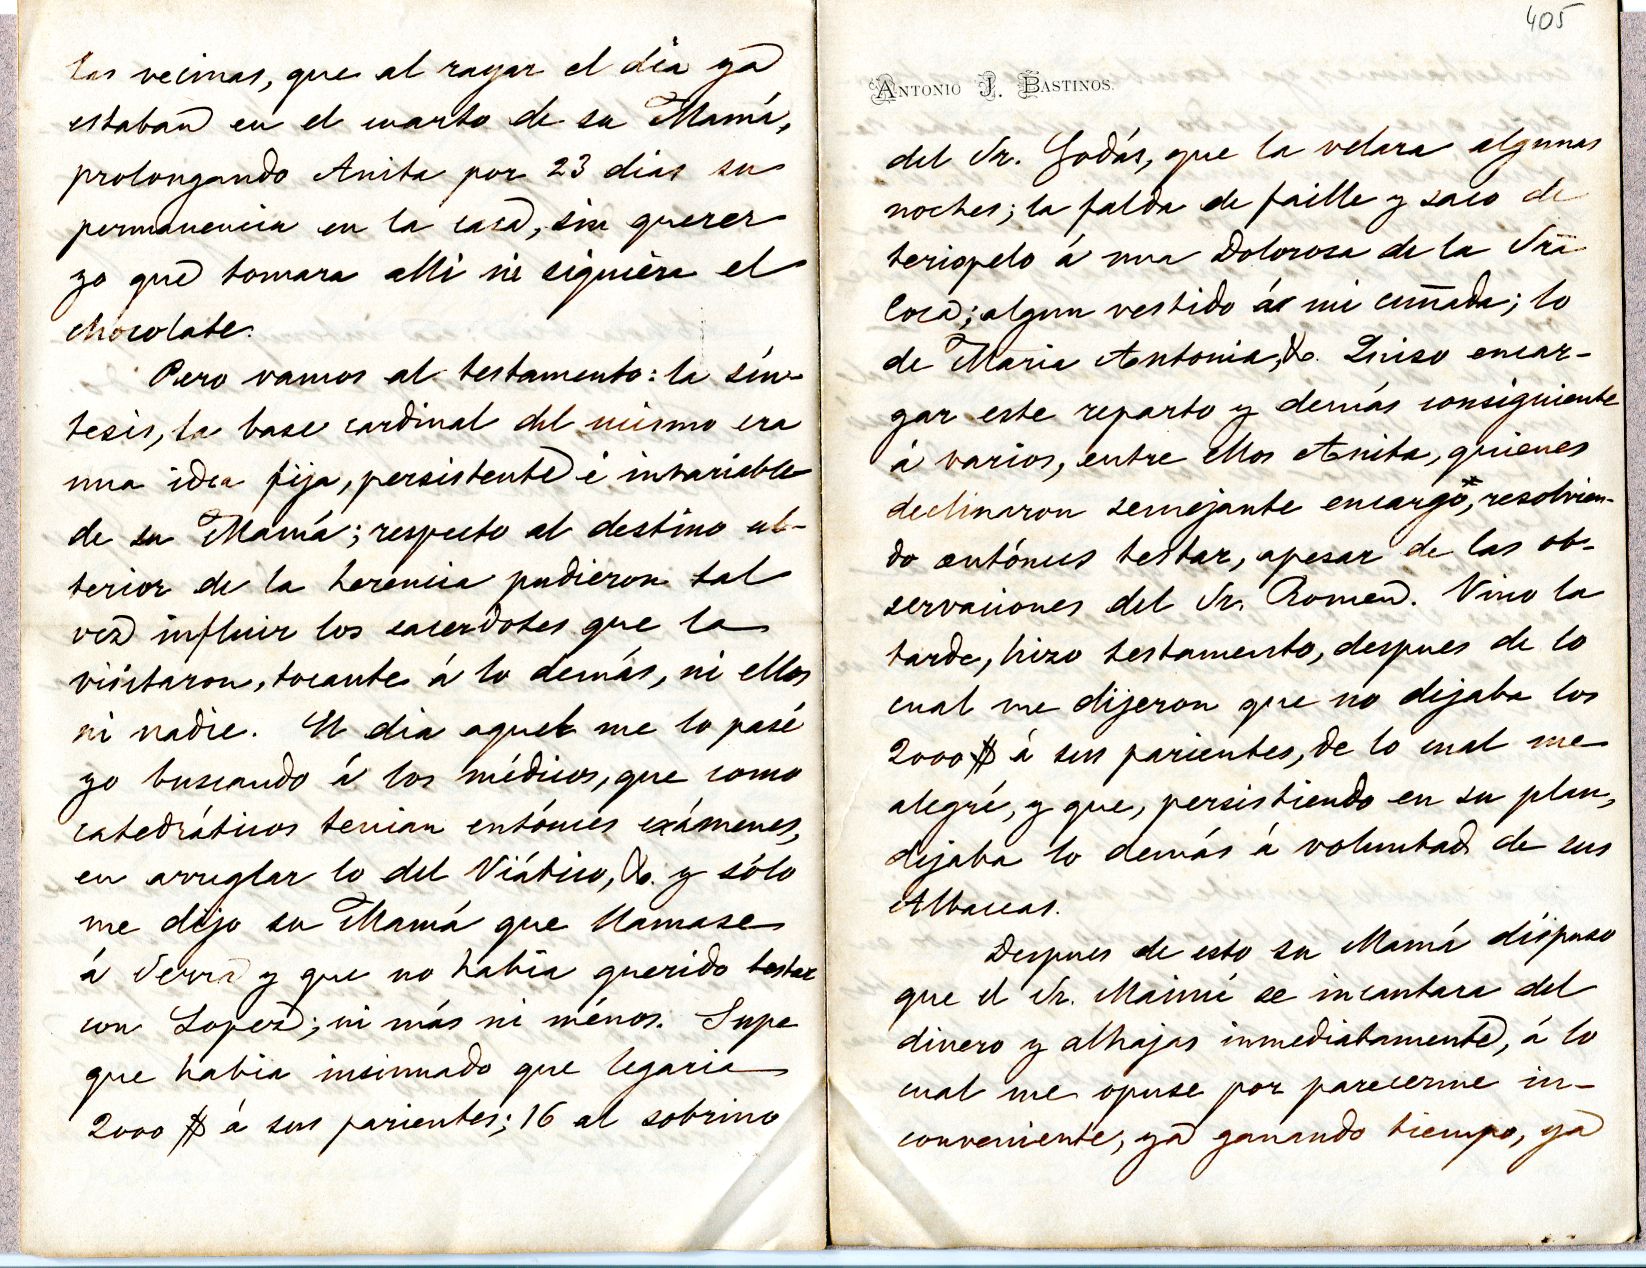 las vecinas, que al rayar el dia ya
estaban en el cuarto de su Mamá,
prolongando Anita por 23 dias su
permanencia en la casa, sin querer
yo que tomara alli ni siquiera el
chocolate.
Pero vamos al testamento: la sín-
tesis, la base cardinal del mismo era
una idea fija, persistente é invariable
de su Mamá; respecto al destino ul-
terior de la herencia pudieron tal
vez influir los sacerdotes que la
visitaron, tocante á lo demás, ni ellos
ni nadie. El dia aquel me lo pasé
yo buscando á los médicos, que como
catedráticos tenian entónces exámenes,
en arreglar lo del Viático, &. y sólo
me dijo su Mamá que llamase
á Serra y que no habia querido testar
con Lopez; ni más ni ménos. Supe
que habia insinuado que legaria
2000 $ á sus parientes; 16 al sobrino
405
ANTONIO J. BASTINOS.
del Sr. Godás, que la velara algunas
noches; la falda de faille y saco de
terciopelo á una Dolorosa de la Sra
Coca; algun vestido á mi cuñada; lo
de Maria Antonia, &. Quiso encar-
gar este reparto y demás consiguiente
á varios, entre ellos Anita, quienes
declinaron semejante encargo, resolvien-
do entónces testar, apesar de las ob-
servaciones del Sr. Romeu. Vino la
tarde, hizo testamento, despues de lo
cual me dijeron que no dejaba los
2000 $ á sus parientes, de lo cual me
alegré, y que, persistiendo en su plan,
dejaba lo demás á voluntad de sus
Albaceas.
Despues de esto su Mamá dispuso
que el Sr. Maimí se incautara del
dinero y alhajas inmediatamente, á lo
cual me opuse por parecerme in-
conveniente, ya ganando tiempo, ya